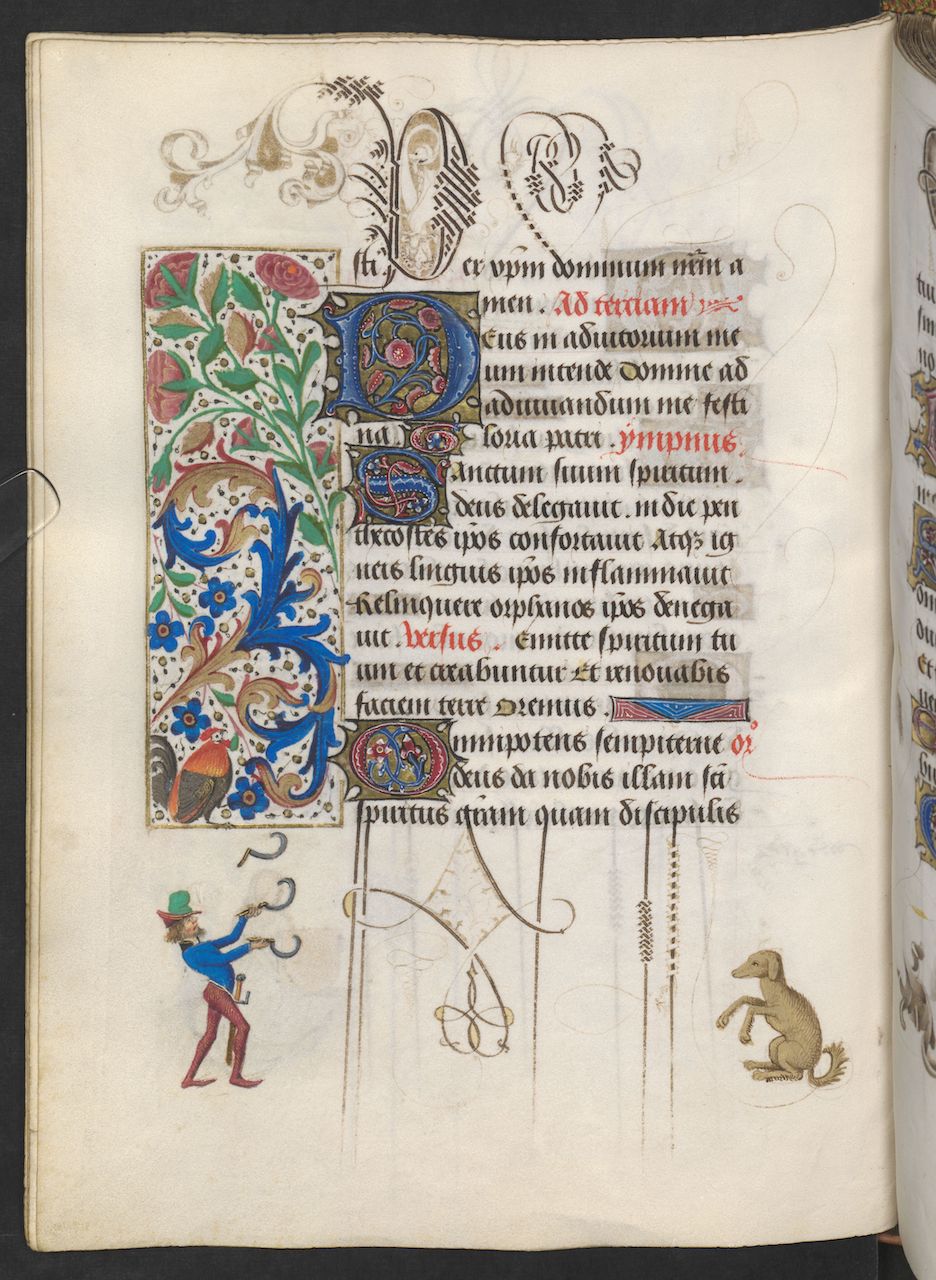 sti. Per xp̄m dominum nr̄m a
men. Ad terciam
Deus in adiutorium me
um intende Domine ad
adiuuandum me festi
na. Gloria patri. ympnus.
Sanctum suum spiritum.
deus delegauit. in die pen
thecostes ip̄os confortauit Atq3 ig
neis linguis ip̄os inflammauit
Relinquere orphanos ip̄os denega
uit. versus. Emitte spiritum tu
um et creabuntur Et renouabis
faciem terre Oremus.
Omnipotens sempiterne or̄
deus da nobis illam sc̄i
spiritus gr̄am quam discipulis